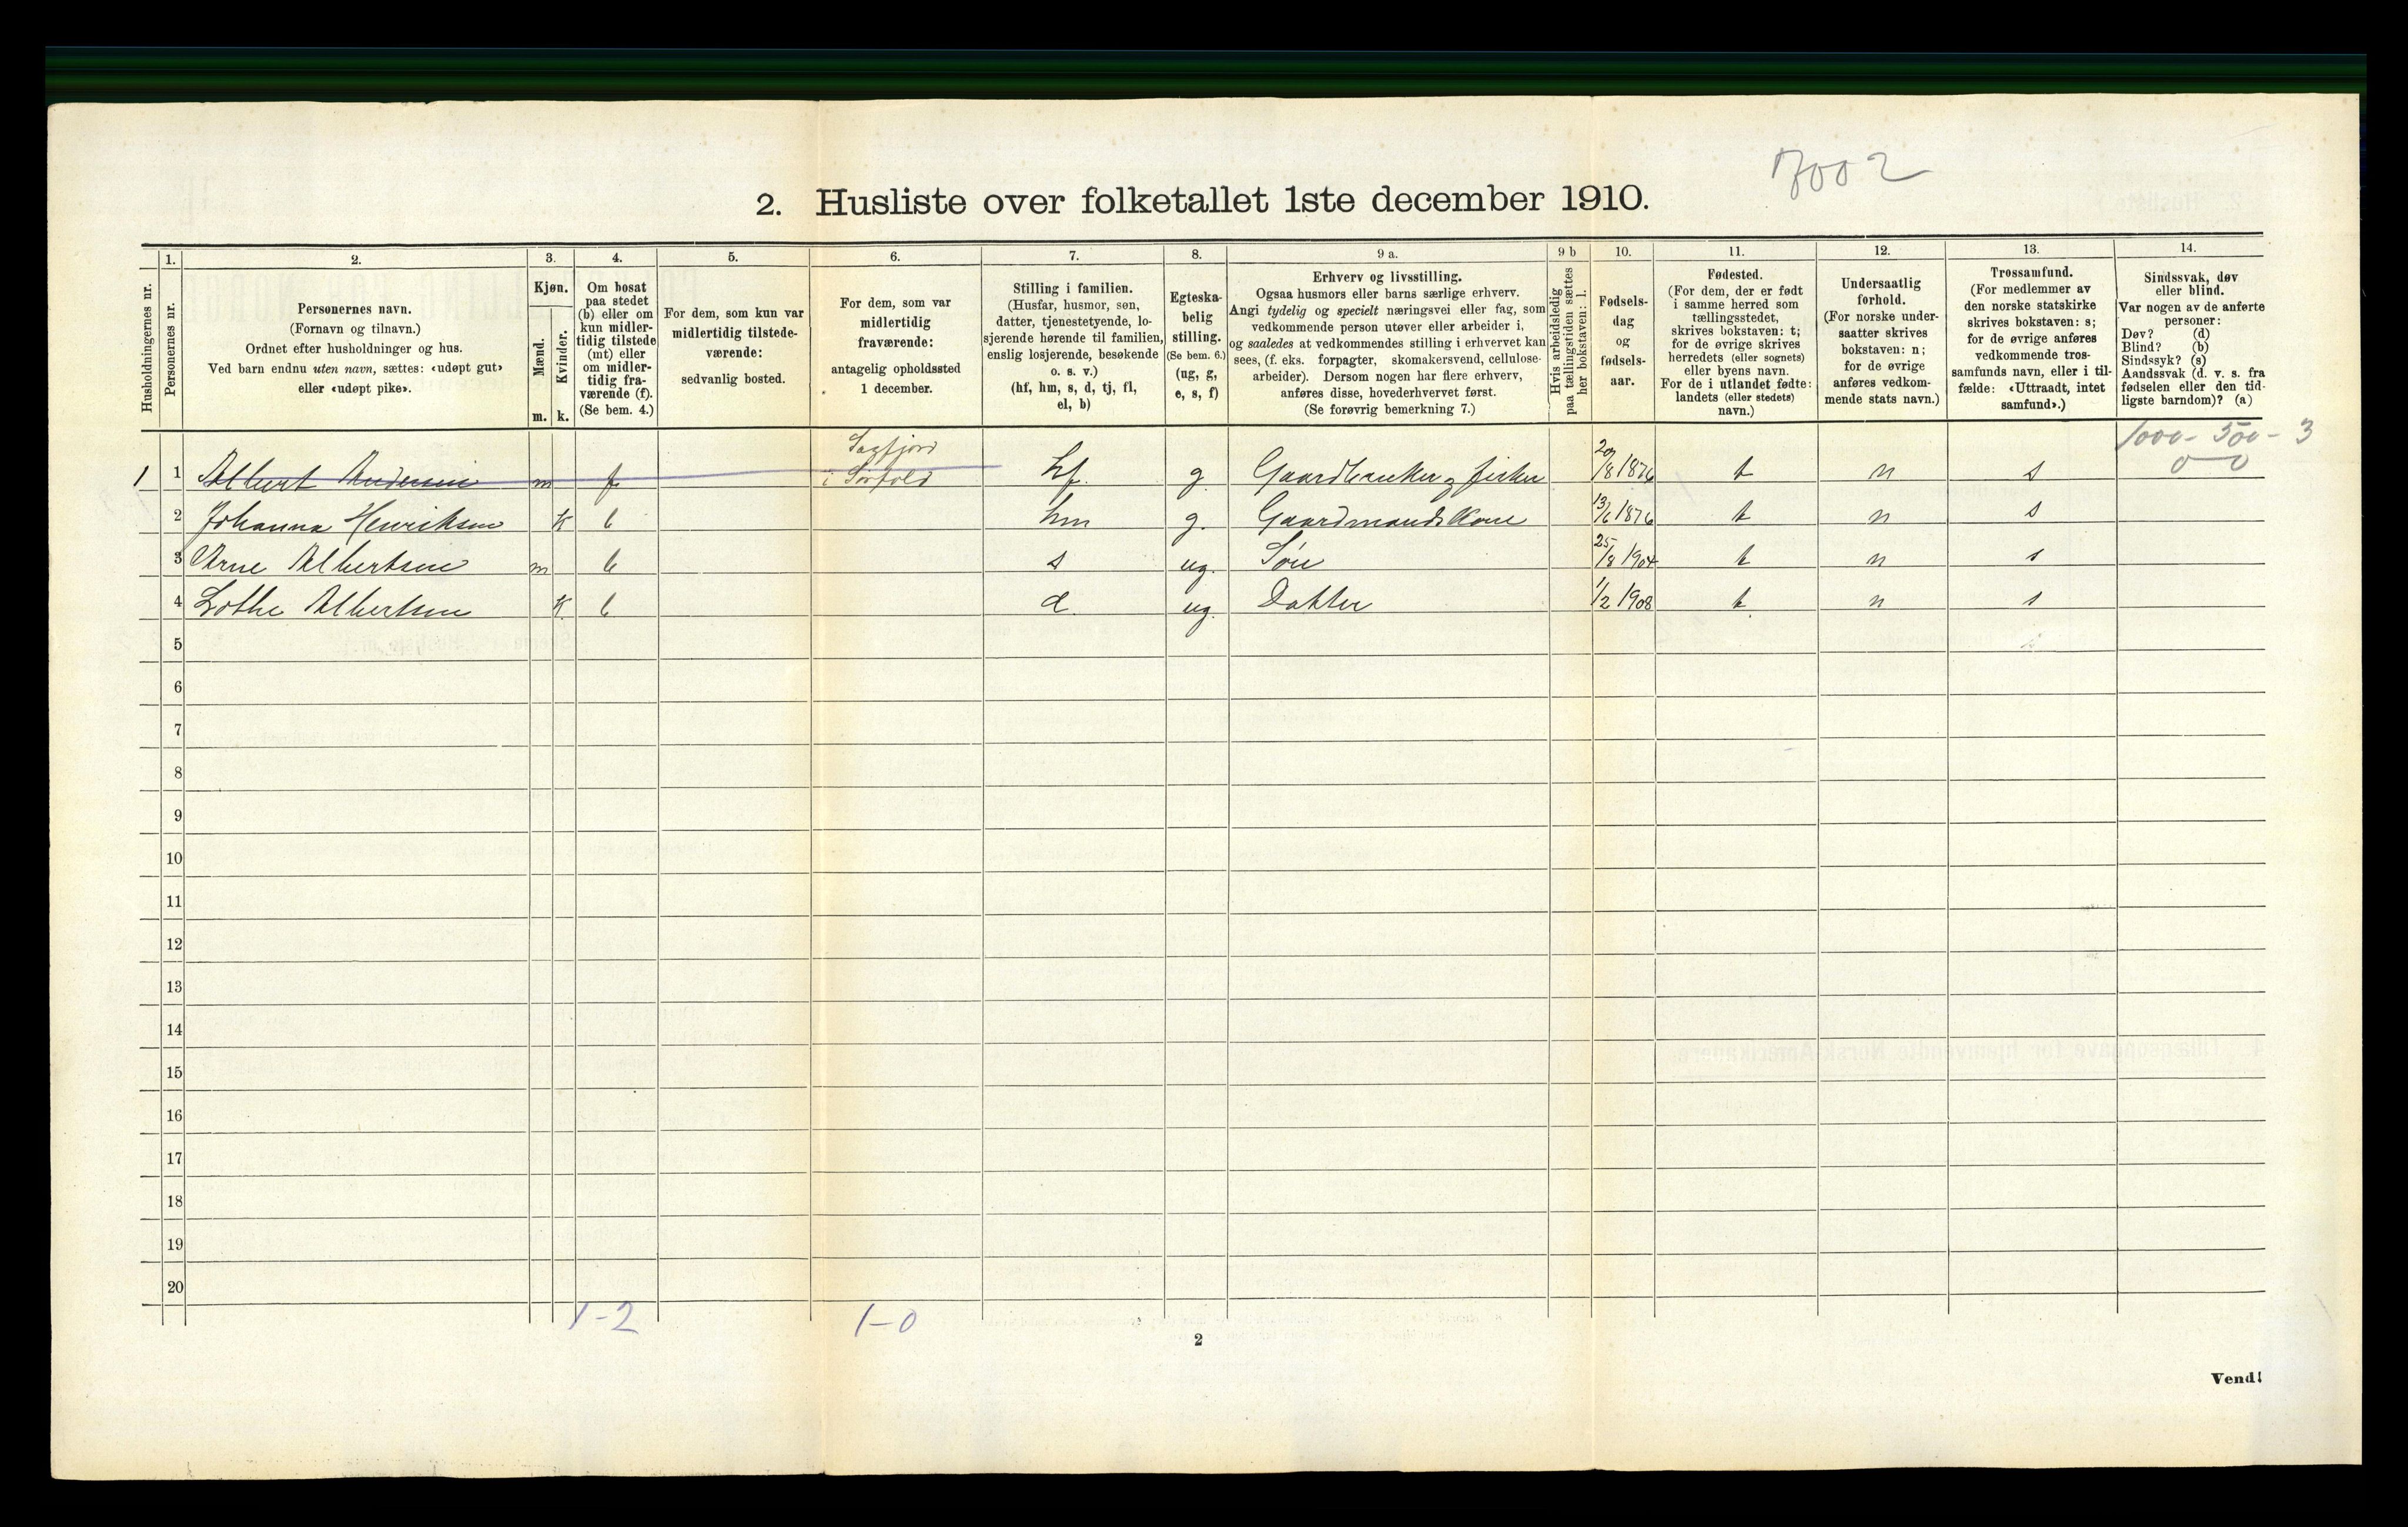 7002
2. Husliste over folketallet 1ste december 1910.
Husholdningernes nr.
1.
Personernes nr.
2.
Personernes navn.
(Fornavn og tilnavn.)
Ordnet efter husholdninger og hus.
Ved barn endnu uten navn, sættes: «udøpt gut»
eller «udøpt pike».
3.
Kjøn.
Mænd.
m.
Kvinder.
k.
4.
Om bosat
paa stedet
(b) eller om
kun midler-
tidig tilstede
(mt) eller
om midler-
tidig fra-
værende (f).
(Se bem. 4.)
5.
For dem, som kun var
midlertidig tilstede-
værende:
sedvanlig bosted.
6.
For dem, som var
midlertidig
fraværende:
antagelig opholdssted
1 december.
7.
Stilling i familien.
(Husfar, husmor, søn,
datter, tjenestetyende, lo-
sjerende hørende til familien,
enslig losjerende, besøkende
o. s. v.)
(hf, hm, s, d, tj, fl,
el, b)
8.
Egteska-
belig
stilling.
(Se bem. 6.)
(ug, g,
e, s, f)
9 a.
Erhverv og livsstilling.
Ogsaa husmors eller barns særlige erhverv.
Angi tydelig og specielt næringsvei eller fag, som
vedkommende person utøver eller arbeider i,
og saaledes at vedkommendes stilling i erhvervet kan
sees, (f. eks. forpagter, skomakersvend, cellulose-
arbeider). Dersom nogen har flere erhverv,
anføres disse, hovederhvervet først.
(Se forøvrig bemerkning 7.)
9 b
Hvis arbeidsledig
paa tællingstiden sættes
her bokstaven: l.
10.
Fødsels-
dag
og
fødsels-
aar.
11.
Fødested.
(For dem, der er født
i samme herred som
tællingsstedet,
skrives bokstaven: t;
for de øvrige skrives
herredets (eller sognets)
eller byens navn.
For de i utlandet fødte:
landets (eller stedets)
navn.)
12.
Undersaatlig
forhold.
(For norske under-
saatter skrives
bokstaven: n;
for de øvrige
anføres vedkom-
mende stats navn.)
13.
Trossamfund.
(For medlemmer av
den norske statskirke
skrives bokstaven: s;
for de øvrige anføres
vedkommende tros-
samfunds navn, eller i til-
fælde: «Uttraadt, intet
samfund».)
14.
Sindssvak, døv
eller blind.
Var nogen av de anførte
personer:
Døv? (d)
Blind? (b)
Sindssyk? (s)
Aandssvak (d. v. s. fra
fødselen eller den tid-
ligste barndom)? (a)
1000 - 500 - 3
0 - 0
1 1 Albert Andersen m f Sagfjord i Sørfold hf. g. Gaardbruker og fisker 29/8 1876 t n s
2 Johanna Henriksen K b hm g. Gaardmandskone 13/6 1876 t n s
3 Arne Albertsen m b s ug. Søn 25/8 1904 t n s
4 Lothe Albertsen K b d. ug. Datter 1/2 1908 t n s
5
6
7
8
9
10
11
12
13
14
15
16
17
18
19
20
1-2 1-0
2
Vend!